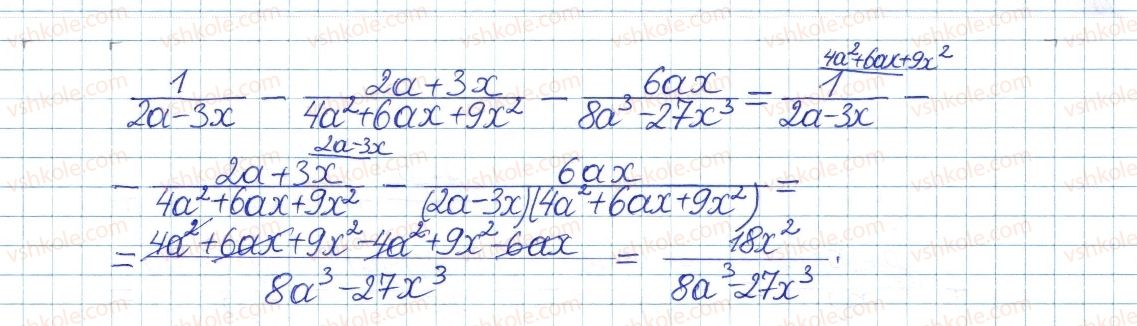 1/(2a-3x) - (2a+3x)/(4a²+6ax+9x²) - 6ax/(8a³-27x³) = 1/(2a-3x) (4a²+6ax+9x² -
- (2a+3x)/(4a²+6ax+9x²) (2a-3x - 6ax/((2a-3x)(4a²+6ax+9x²)) =
= (4a²+6ax+9x²-4a²+9x²-6ax)/(8a³-27x³) = 18x²/(8a³-27x³).
vshkole.com